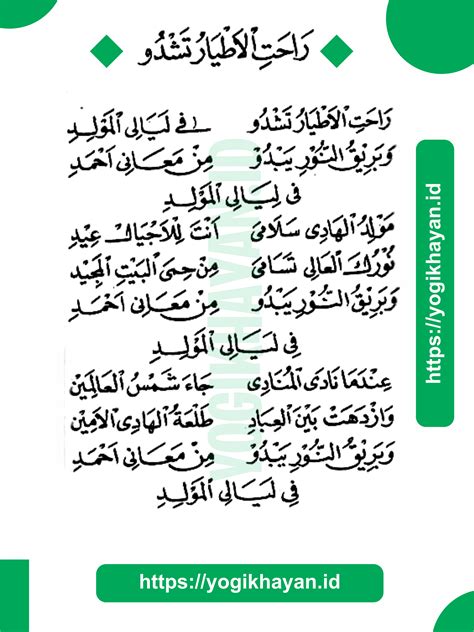 رَاحَتِ الْأَطْيَارُ تَشْدُو
رَاحَتِ الْأَطْيَارُ تَشْدُو فِي لَيَالِي الْمَوْلِدِ
وَبَرِيقُ النُّورِ يَبْدُو مِنْ مَعَانِي أَحْمَدِ
فِي لَيَالِي الْمَوْلِدِ
مَوْلِدُ الْهَادِي سَلَامِي أَنْتَ لِلْأَجْيَالِ عِيدِ
نُورُكَ الْعَالِي تَسَامَى مِنْ حِمَى الْبَيْتِ الْمَجِيدِ
وَبَرِيقُ النُّورِ يَبْدُو مِنْ مَعَانِي أَحْمَدِ
فِي لَيَالِي الْمَوْلِدِ
عِنْدَمَا نَادَى الْمُنَادِي جَاءَ شَمْسُ الْعَالَمِينْ
وَازْدَهَتْ بَيْنَ الْعِبَادِ طَلْعَةُ الْهَادِي الْأَمِينْ
وَبَرِيقُ النُّورِ يَبْدُو مِنْ مَعَانِي أَحْمَدِ
فِي لَيَالِي الْمَوْلِدِ
YOGIKHAYAN.ID
https://yogikhayan.id
https://yogikhayan.id